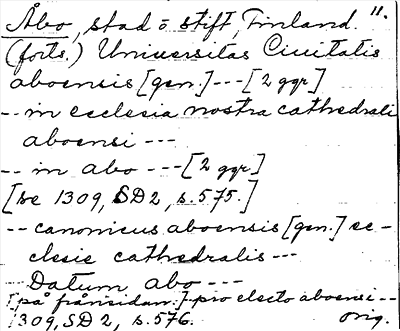 Åbo, stad o stift, Finland. 11.
(forts.) Universitas Ciuitatis
aboensis [gen.] --- [2 ggr]
-- in ecclesia nostra cathedrali
aboensi ---
-- in abo --- [2 ggr]
[se 1309, SD 2, s. 575.]
-- canonicus aboensis [gen.] ec-
clesie cathedralis ---
Datum abo ---
[på frånsidan:] pro electo aboensi --
1309, SD 2, s. 576. orig.